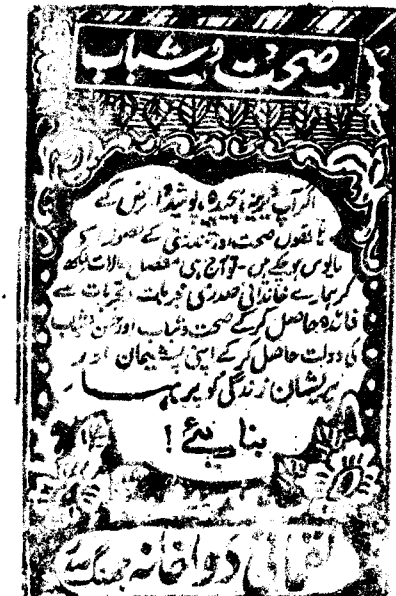 صحت و شباب
اگر آپ پیچیدہ، پوشیدہ امراض کے
ہاتھوں صحت اور تندرستی کے تصور سے
مایوس ہو چکے ہیں۔ تو آج ہی مفصل حالات لکھ
کر ہمارے خاندانی صدری مجربات و تجربات سے
فائدہ حاصل کر کے صحت و شباب اور حسن
کی دولت حاصل کر کے اپنی پشیمان اور
پریشان زندگی کو پر بہار
بنا ہیئے !
لقمانی دواخانہ جھنگ